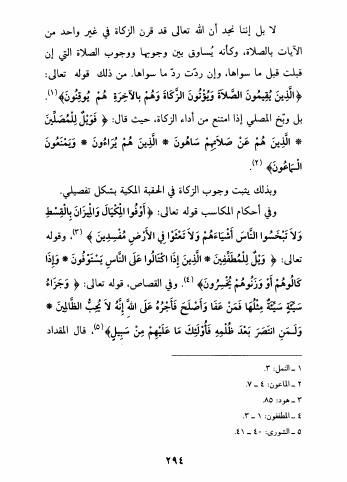 لا بل إننا نجد أن الله تعالى قد قرن الزكاة في غير واحد من
الآيات بالصلاة، وكأنه يُساوق بين وجوبها ووجوب الصلاة التي إن
قبلت قبل ما سواها، وإن ردّت ردّ ما سواها. من ذلك قوله تعالى:
﴿الَّذِينَ يُقِيمُونَ الصَّلاَةَ وَيُؤْتُونَ الزَّكَاةَ وَهُمْ بِالآخِرَةِ هُمْ يُوقِنُونَ﴾(١).
بل وبّخ المصلي إذا امتنع من أداء الزكاة، حيث قال: ﴿ فَوَيْلٌ لِلْمُصَلِّينَ
* الَّذِينَ هُمْ عَنْ صَلاَتِهِمْ سَاهُونَ * الَّذِينَ هُمْ يُرَاءُونَ * وَيَمْنَعُونَ
الْمَاعُونَ﴾ (٢).
وبذلك يثبت وجوب الزكاة في الحقبة المكية بشكل تفصيلي.
وفي أحكام المكاسب قوله تعالى: ﴿ أَوْفُوا الْمِكْيَالَ وَالْمِيزَانَ بِالْقِسْطِ
وَلاَ تَبْخَسُوا النَّاسَ أَشْيَاءَهُمْ وَلاَ تَعْثَوْا فِي الأَرْضِ مُفْسِدِينَ ﴾ (٣)، وقوله
تعالى: ﴿ وَيْلٌ لِلْمُطَفِّفِينَ * الَّذِينَ إِذَا اكْتَالُوا عَلَى النَّاسِ يَسْتَوْفُونَ * وَإِذَا
كَالُوهُمْ أَوْ وَزَنُوهُمْ يُخْسِرُونَ﴾ (٤). وفي القصاص، قوله تعالى: ﴿ وَجَزَاءُ
سَيِّئَةٍ سَيِّئَةٌ مِثْلُهَا فَمَنْ عَفَا وَأَصْلَحَ فَأَجْرُهُ عَلَى اللهِ إِنَّهُ لاَ يُحِبُّ الظَّالِمِينَ *
وَلَمَنِ انْتَصَرَ بَعْدَ ظُلْمِهِ فَأُوْلَئِكَ مَا عَلَيْهِمْ مِنْ سَبِيلٍ﴾(٥)، قال المقداد
١ ـ النمل: ٣.
٢ ـ الماعون: ٤ ـ ٧.
٣ ـ هود: ٨٥.
٤ ـ المطففون: ١ ـ ٣.
٥ ـ الشورى: ٤٠ ـ ٤١.
٢٩٤